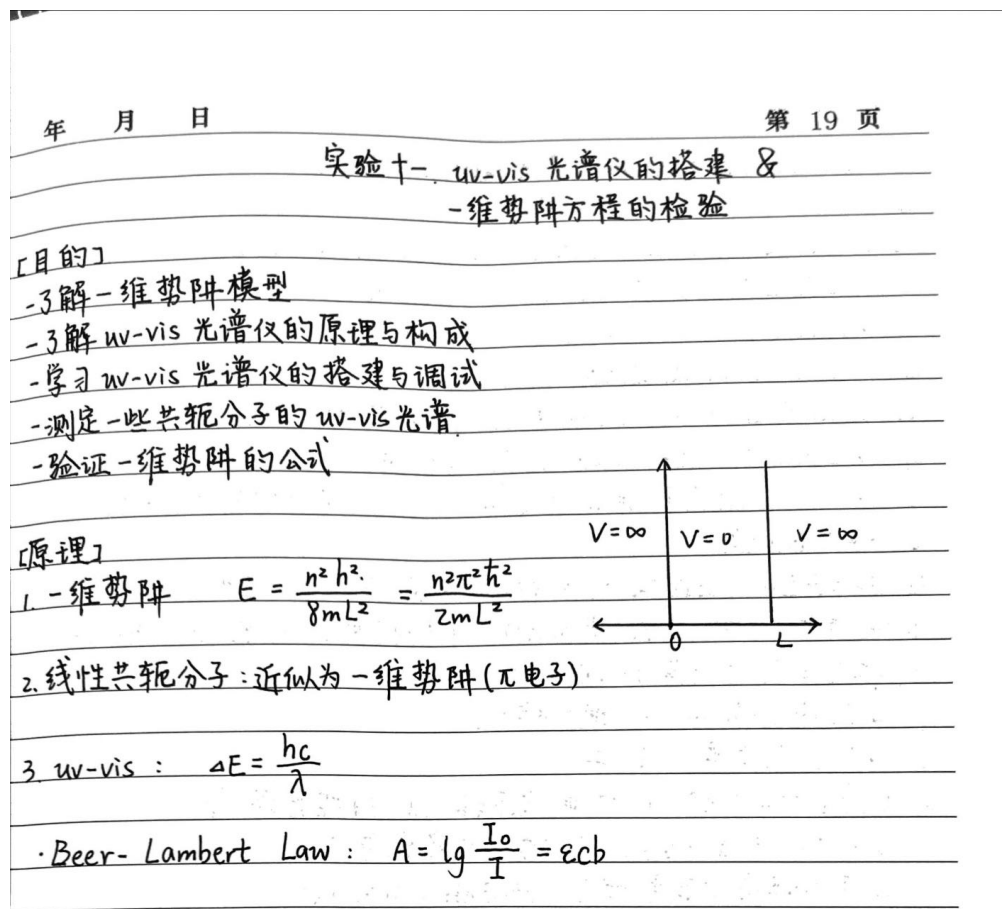 年 月 日 第 19 页
实验十一. uv-vis 光谱仪的搭建 &
一维势阱方程的检验
[目的]
-了解一维势阱模型
-了解 uv-vis 光谱仪的原理与构成
-学习 uv-vis 光谱仪的搭建与调试
-测定一些共轭分子的 uv-vis 光谱.
-验证一维势阱的公式
[原理]
V=∞ V=0 V=∞
1. 一维势阱 E = n²h²/8mL² = n²π²ħ²/2mL²
0 L
2. 线性共轭分子:近似为一维势阱(π电子)
3. uv-vis : ΔE = hc/λ
·Beer-Lambert Law : A = lg I₀/I = εcb